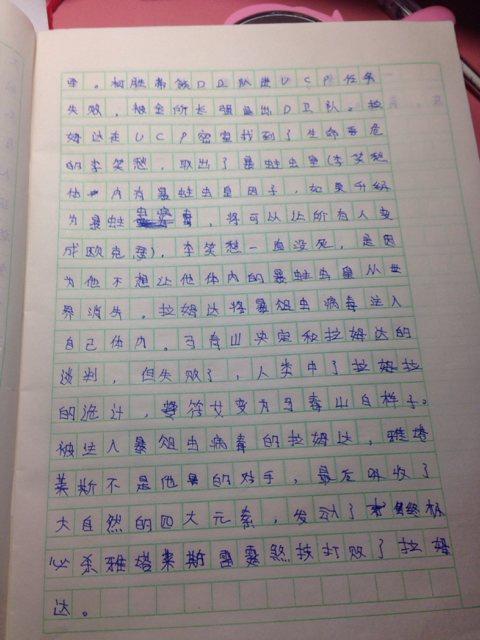 里。柯胜带领D卫队进UCP任务
失败，被金所长强量出D卫队。拉
姆达在UCP密室找到了生命垂危
的李笑愁，取出了暴蛀虫皇(李笑愁
体内有暴蛀虫皇因子，如果升级
为暴蛀毒，将可以让所有人变
成欧克瑟)，李笑愁一直没死，是因
为他不想让他体内的暴蛀虫皇从世
界消失。拉姆达将暴俎虫病毒注入
自己体内。马春山决定和拉姆达的
谈判，但失败了，人类中了拉姆拉
的诡计，符文变为马春山自样子。
被注入暴俎虫病毒的拉姆达，雅塔
莱斯不是他的对手，最后吸收了
大自然的四大元素，发动了终极
必杀雅塔莱斯雷霆煞技打败了拉姆
达。